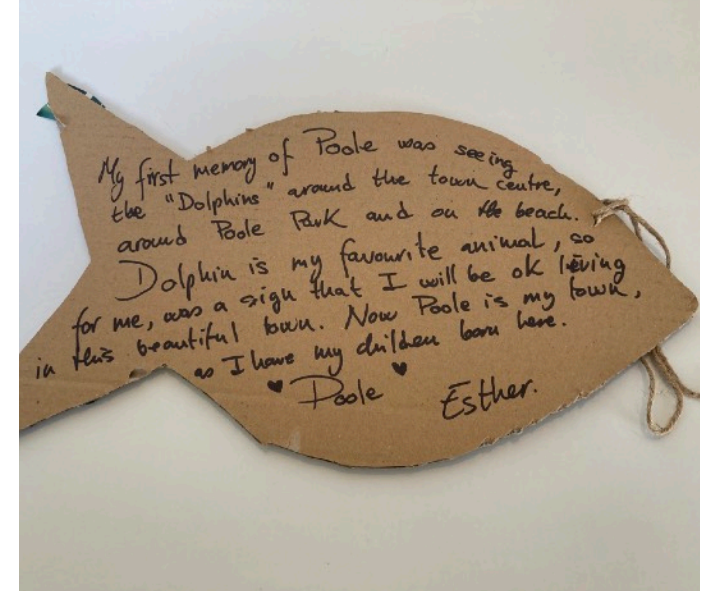 My first memory of Poole was seeing
the "Dolphins" around the town centre,
around Poole Park and on the beach.
Dolphin is my favourite animal, so
for me, was a sign that I will be ok living
in this beautiful town. Now Poole is my town,
as I have my children born here.
♥ Poole ♥
Esther.